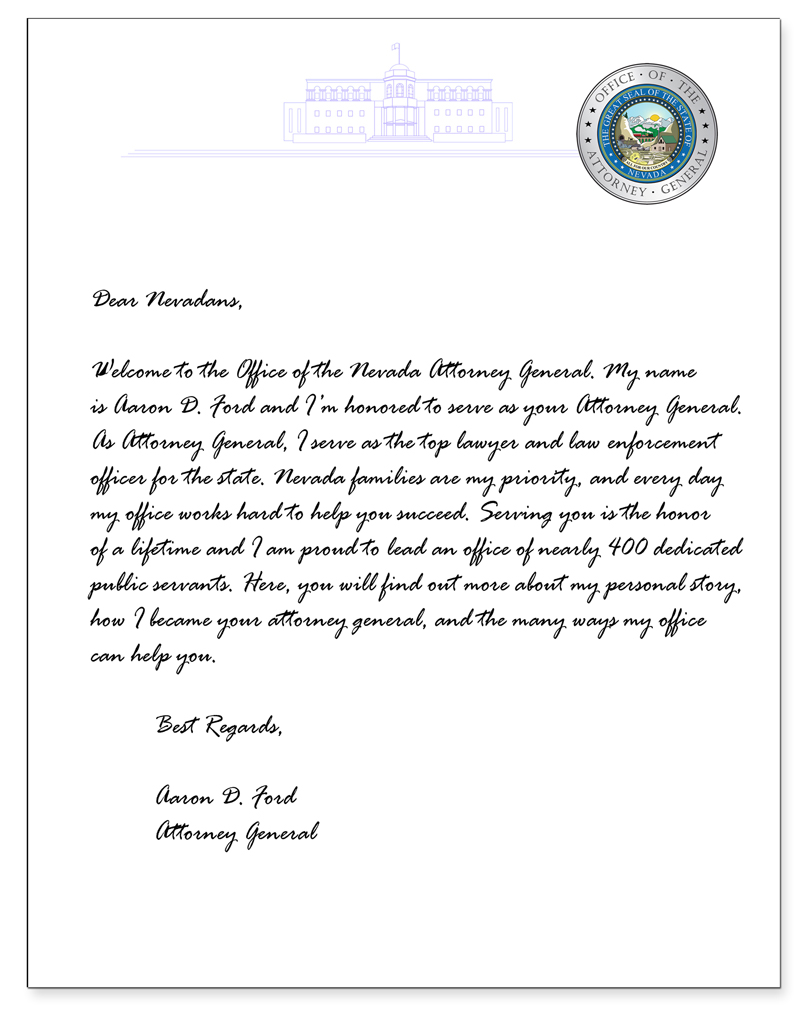 OFFICE · OF · THE
ATTORNEY · GENERAL
THE GREAT SEAL OF THE STATE OF
NEVADA
ALL FOR OUR COUNTRY
Dear Nevadans,
Welcome to the Office of the Nevada Attorney General. My name
is Aaron D. Ford and I'm honored to serve as your Attorney General.
As Attorney General, I serve as the top lawyer and law enforcement
officer for the state. Nevada families are my priority, and every day
my office works hard to help you succeed. Serving you is the honor
of a lifetime and I am proud to lead an office of nearly 400 dedicated
public servants. Here, you will find out more about my personal story,
how I became your attorney general, and the many ways my office
can help you.
Best Regards,
Aaron D. Ford
Attorney General